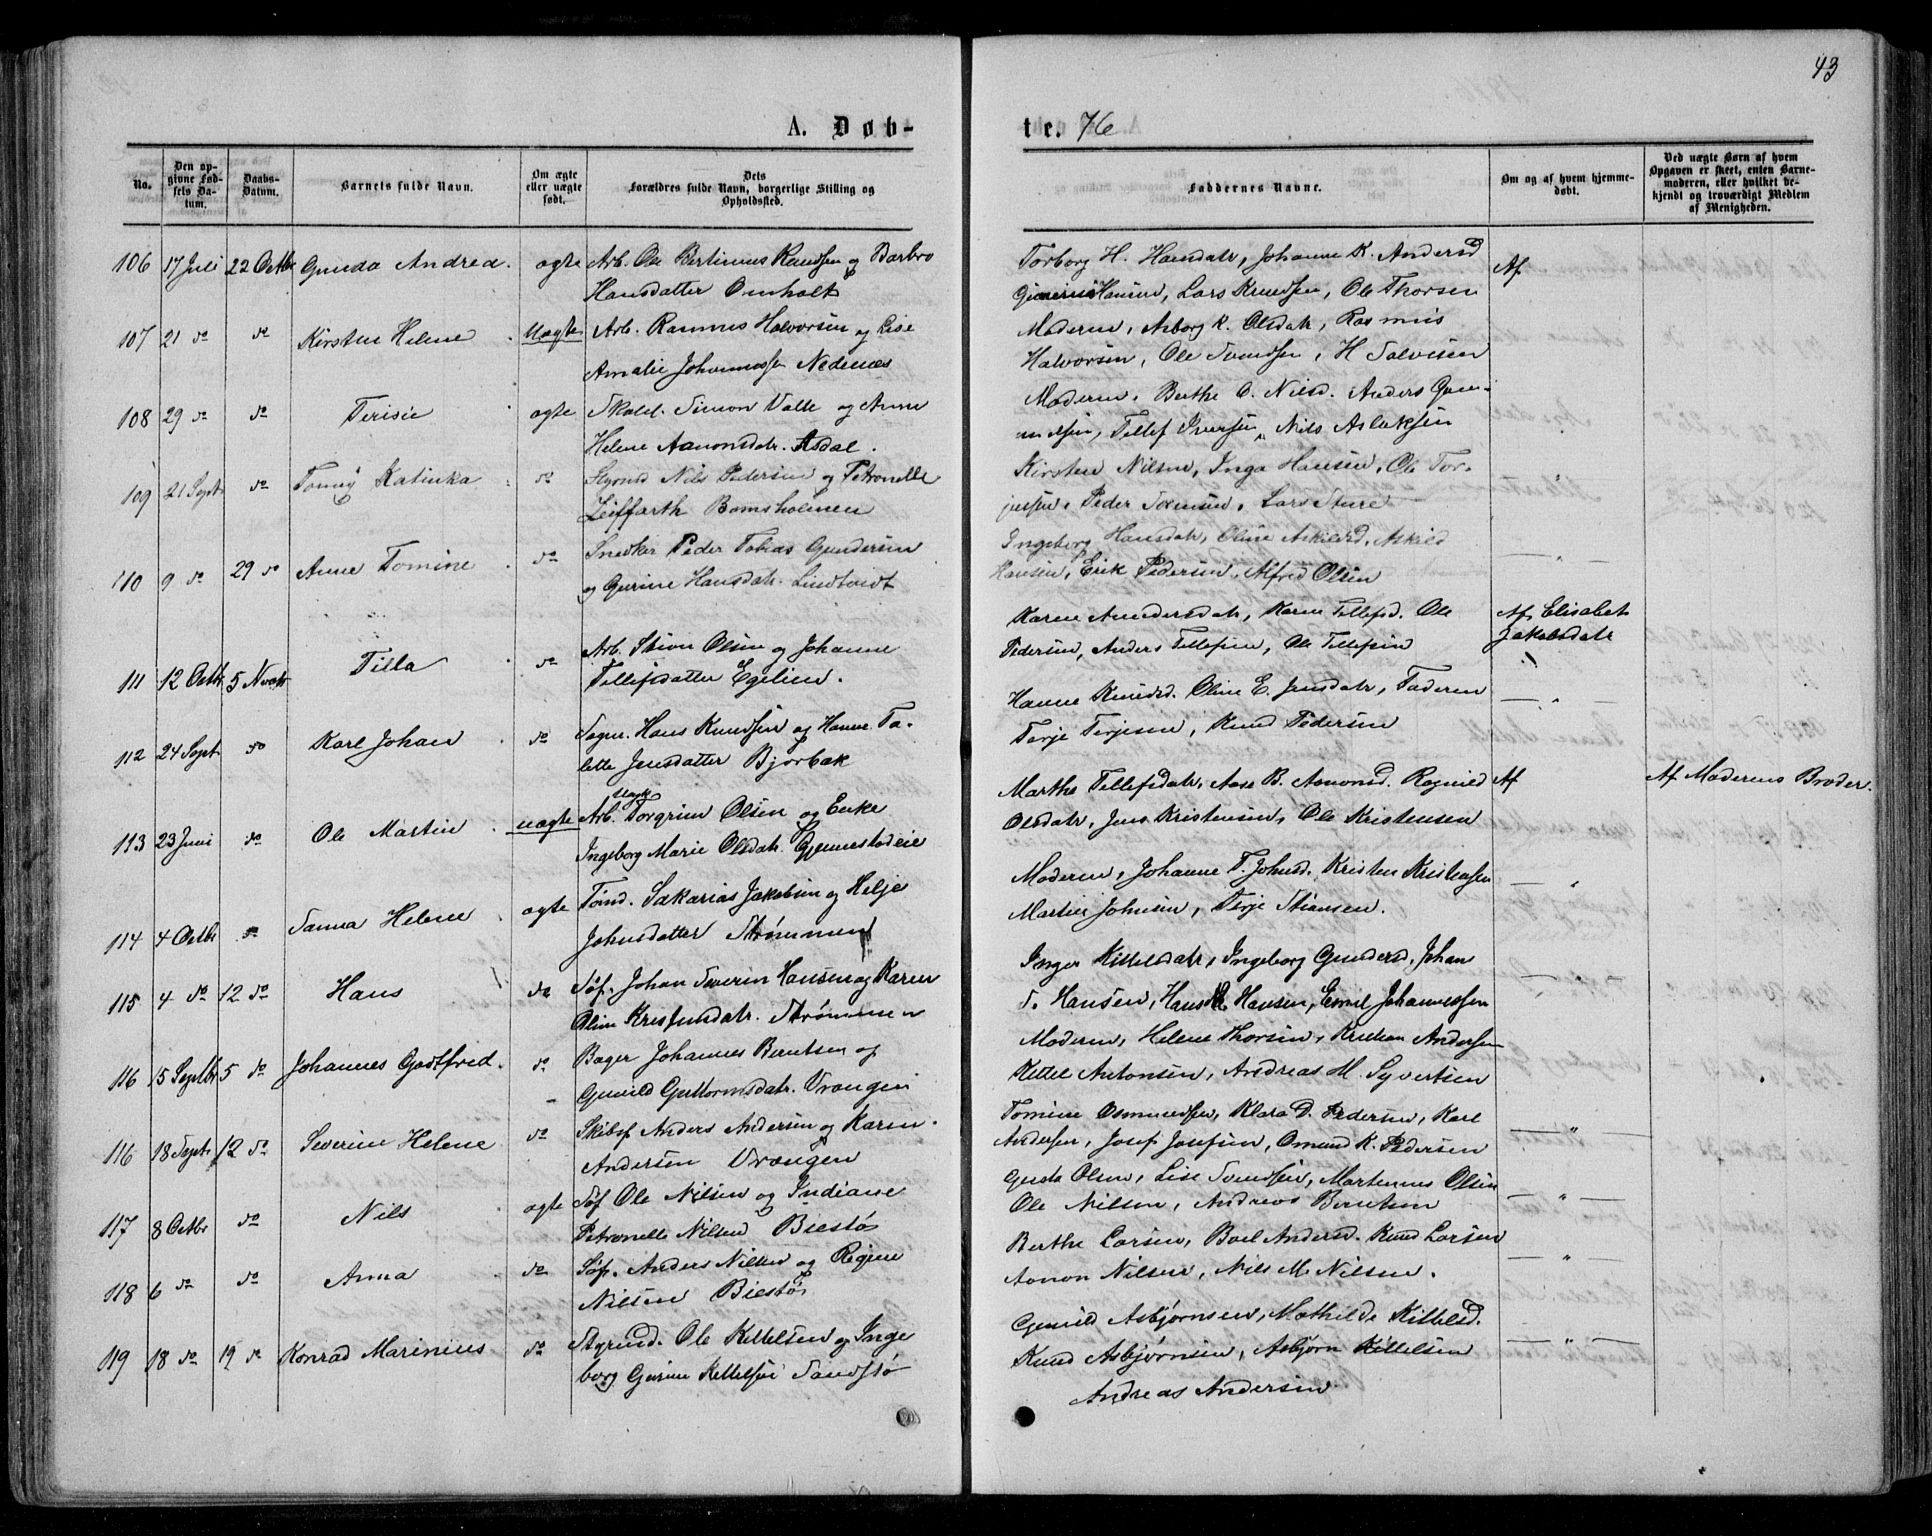 43
A. Døb-
te. 76
No.
Den op-
givne Fød-
sels Da-
tum.
Daabs-
Datum.
Barnets fulde Navn.
Om ægte
eller uægte
født.
Dets
Forældres fulde Navn, borgerlige Stilling og
Opholdssted.
Faddernes Navne.
Om og af hvem hjemme-
døbt.
Ved uægte Børn af hvem
Opgaven er skeet, enten Barne-
moderen, eller hvilket be-
kjendt og troværdigt Medlem
af Menigheden.
106 17 Juli 22 Octbr Gunda Andrea. ægte Arb. Ole Bertinius Knudsen og Barbro
Hansdatter Omholt
Torborg H. Hansdatr, Johanne K. Andersd
Hansen, Lars Knudsen, Ole Thorsen
Af
107 21 do do Kirsten Helene Uægte Arb. Rasmus Halvorsen og Lise
Amalie Johannessen Nedenæs
Moderen, Asborg K. Olsdatr, Rasmus
Halvorsen, Ole Svendsen, H Salvesen
108 29 do do Terisie ægte Skolel. Simon Valle og Anne
Helene Aanonsdatr. Asdal.
Moderen, Berthe O. Nilsd. Anders Gun-
dersen, Tellef Iversen, Nils Aslaksen
109 21 Sept do Tomig Katinka do Styrmd Nils Pedersen og Petronelle
Leiffarth Bomsholmen
Kirsten Nilsen, Inga Hansen, Ole Tor-
jussen, Peder Sørensen, Lars Sture
110 9 do 29 do Anne Tomine do Snedker Peder Tobias Gundersen
og Gurine Hansdatr. Lindtveit
Ingeborg Hansdatr, Oline Askildsd, Askild
Hansen, Erik Pedersen, Alfred Olsen
111 12 Octbr 5 Novbr Tilla do Arb. Stian Olsen og Johanne
Tellefsdatter Egelien.
Karen Andersdatr, Karen Tellefsd. Ole
Pedersen, Anders Tellefsen, Ole Tellefsen
Af Elisabet
Jakobsdatr
112 24 Sept do Karl Johan do Sagm. Hans Knudsen og Hanne Ta-
lette Jensdatter Bjørbæk
Hanne Knudsd. Oline E. Jensdatr, Faderen
Terje Terjesen, Knud Pedersen
113 23 Juni do Ole Martin uægte Arb. Ungk. Torgrim Olsen og Enke
Ingeborg Marie Olsdatr. Gjennestadeie
Marthe Tellefsdatr, Aase B. Aanonsd. Ragnild
Olsdatr, Jens Kristensen, Ole Kristensen
Af
Af Moderens Broder.
114 4 Octbr do Sanna Helene ægte Tømd. Sakarias Jakobsen og Helje
Johnsdatter Strømmen
Moderen, Johanne T. Johnsd. Kristen Kristensen
Martin Johnsen, Terje Stiansen.
115 4 do 12 do Hans do Søf. Johan Severin Hansen og Karen
Oline Kristensdatr. Strømmen
Inger Kittelsdatr, Ingeborg Gundersd, Johan
S. Hansen, Hans K. Hansen, Emil Johannessen
116 15 Septbr 5 do Johannes Godtfred. do Bager Johannes Berntsen og
Gunild Guttormsdatr. Vrængen
Moderen, Helene Thorsen, Kristian Andersen
Kittel Antonsen, Andreas M. Syvertsen
116 18 Sept. 12 do Severine Helene do Skibsf Anders Andersen og Karen
Andersen Vrængen
Tomine Osmundsen, Klara D. Pedersen, Karl
Andersen, Josef Josefsen, Omund K. Pedersen
117 8 Octbr do Nils ægte Søf Ole Nilsen og Indiane
Petronelle Nilsen Biestø
Gusta Olsen, Lise Svendsen, Martinius Olsen
Ole Nilsen, Andreas Berntsen
118 6 do do Anna do Søf. Anders Nilsen og Regine
Nilsen Biestø
Berthe Larsen, Boel Andersd. Knud Larsen
Aanon Nilsen, Nils M. Nilsen.
119 18 do 19 do Konrad Marinius do Styrmd. Ole Kittelsen og Inge
borg Gurine Kittelsen Sandstø
Gunild Asbjørnsen, Mathilde Kittelsd.
Knud Asbjørnsen, Asbjørn Kittelsen
Andreas Andersen